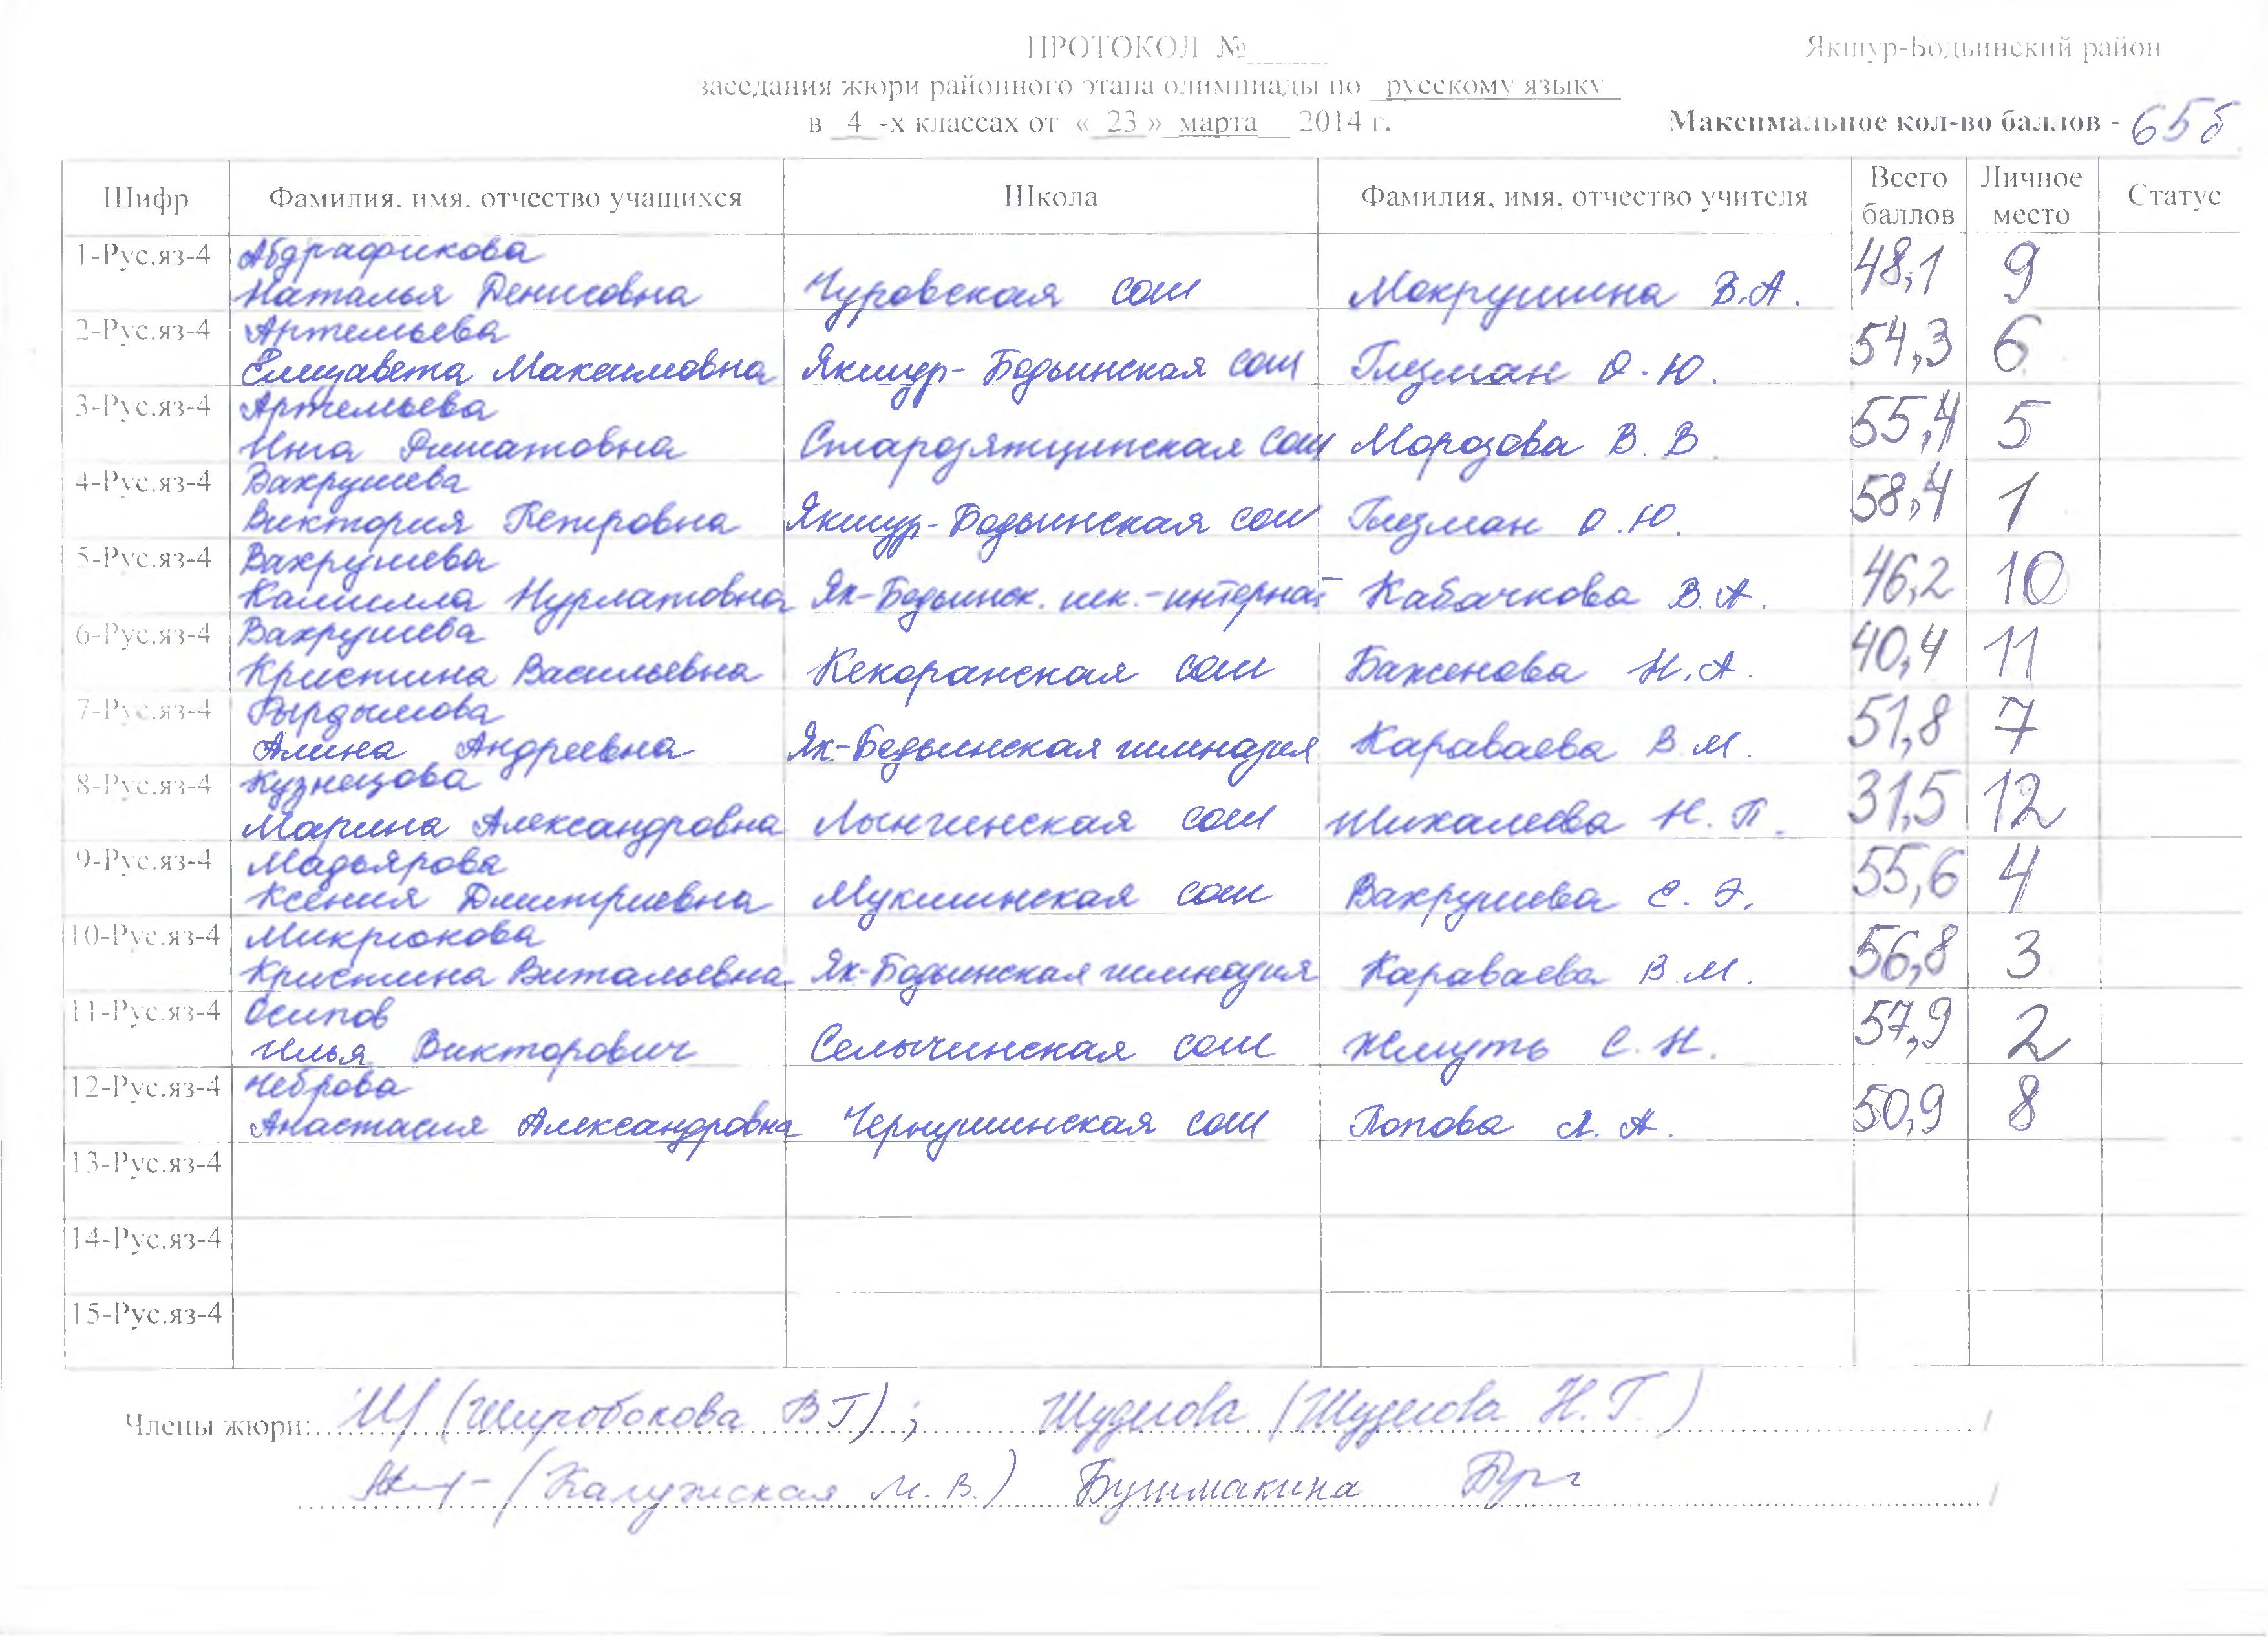 ПРОТОКОЛ №
Якшур-Бодьинский район
заседания жюри районного этапа олимпиады по русскому языку
в 4 -х классах от « 23 » марта 2014 г.
Максимальное кол-во баллов - 65 б
Шифр Фамилия, имя, отчество учащихся Школа Фамилия, имя, отчество учителя Всего баллов Личное место Статус
1-Рус.яз-4 Абдрафикова
Наталья Денисовна Чуровская сош Мокрушина В.А. 48,1 9
2-Рус.яз-4 Артемьева
Елизавета Максимовна Якшур-Бодьинская сош Глезман О.Ю. 54,3 6
3-Рус.яз-4 Артемьева
Инга Ришатовна Старозятцинская сош Морозова В. В. 55,4 5
4-Рус.яз-4 Вахрушева
Виктория Петровна Якшур-Бодьинская сош Глезман О.Ю. 58,4 1
5-Рус.яз-4 Вахрушева
Камилла Нурлатовна Як-Бодьинск. шк.-интернат Кабачкова В.А. 46,2 10
6-Рус.яз-4 Вахрушева
Кристина Васильевна Кекоранская сош Баженова Н.А. 40,4 11
7-Рус.яз-4 Гырдымова
Алина Андреевна Як-Бодьинская гимназия Караваева В.М. 51,8 7
8-Рус.яз-4 Кузнецова
Марина Александровна Лынгинская сош Шихалеева Н. П. 31,5 12
9-Рус.яз-4 Мадьярова
Ксения Дмитриевна Мукшинская сош Вахрушева С. Э. 55,6 4
10-Рус.яз-4 Микрюкова
Кристина Витальевна Як-Бодьинская гимназия Караваева В.М. 56,8 3
11-Рус.яз-4 Осипов
Илья Викторович Селычинская сош Жмуть С.Н. 57,9 2
12-Рус.яз-4 Чеброва
Анастасия Александровна Чернушинская сош Попова Л. А. 50,9 8
13-Рус.яз-4
14-Рус.яз-4
15-Рус.яз-4
Члены жюри: (Широбокова В Г) ; Шудегова (Шудегова Н. Г.)
(Калужская М. В.) Бушмакина